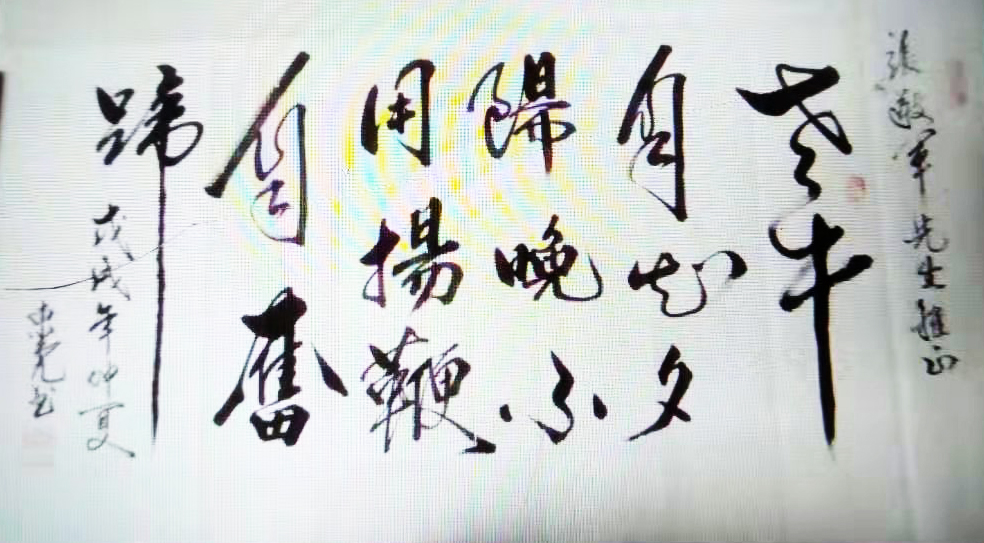 張敬军先生雅正
老牛
自知夕
陽晚不
用揚鞭
自奮
蹄
戊戌年仲夏
书